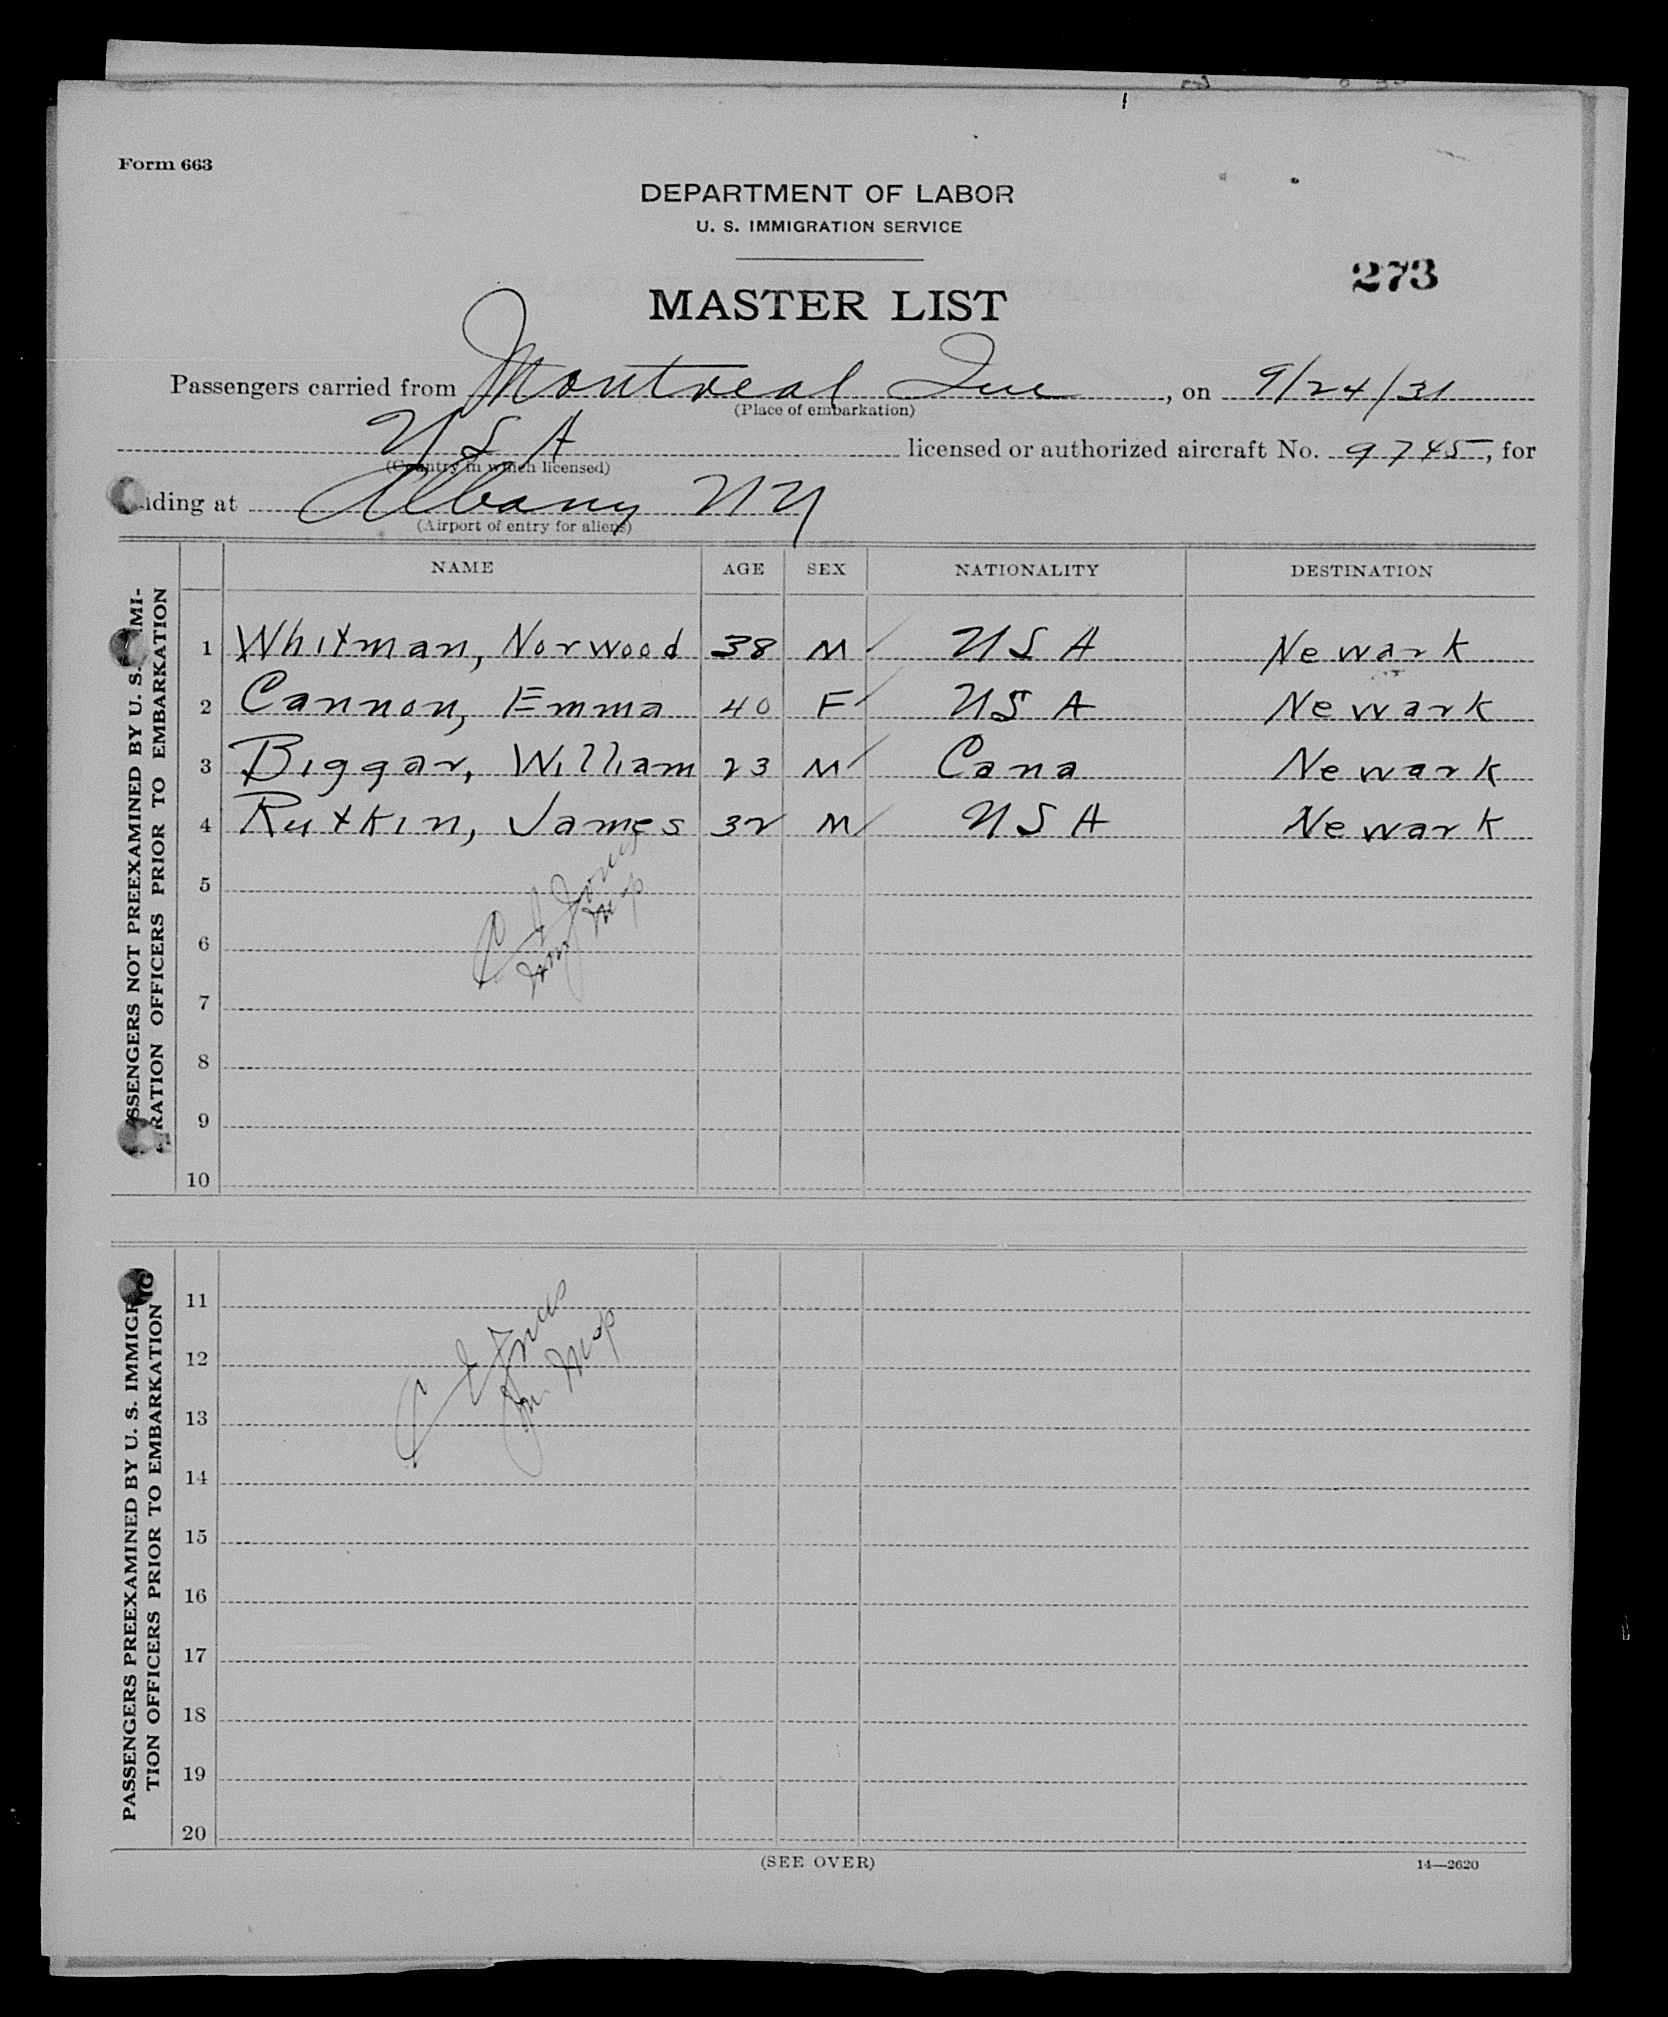 Form 663
DEPARTMENT OF LABOR
U. S. IMMIGRATION SERVICE
273
MASTER LIST
Passengers carried from Montreal Que, on 9/24/31
(Place of embarkation)
U S A licensed or authorized aircraft No. 9745, for
(Country in which licensed)
nding at Albany N Y
(Airport of entry for aliens)
NAME AGE SEX NATIONALITY DESTINATION
SSENGERS NOT PREEXAMINED BY U. S. IMMI-
RATION OFFICERS PRIOR TO EMBARKATION
1 Whitman, Norwood 38 M USA Newark
2 Cannon, Emma 40 F USA Newark
3 Biggar, William 23 M Cana Newark
4 Rutkin, James 32 M USA Newark
5
6
7
8
9
10
PASSENGERS PREEXAMINED BY U. S. IMMIGRA-
TION OFFICERS PRIOR TO EMBARKATION
11
12
13
14
15
16
17
18
19
20
(SEE OVER)
14—2620